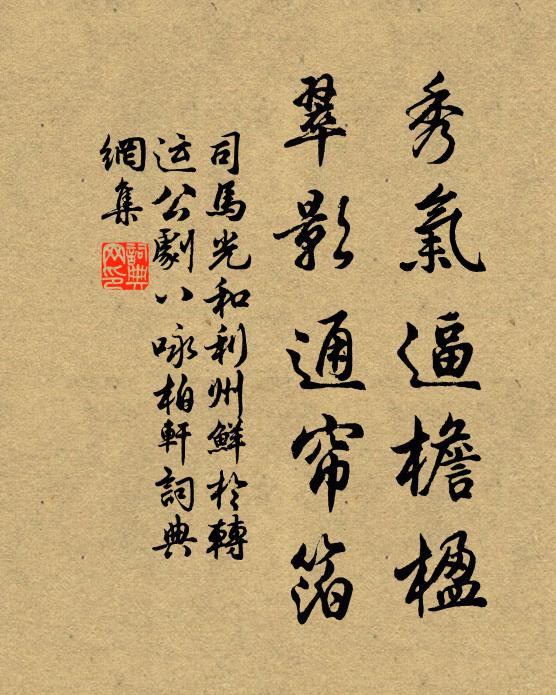 秀氣逼檐楹
翠影通帘箔
司馬光和利州鮮於轉
运公劇八咏柏軒詞典
網集
詞典网印